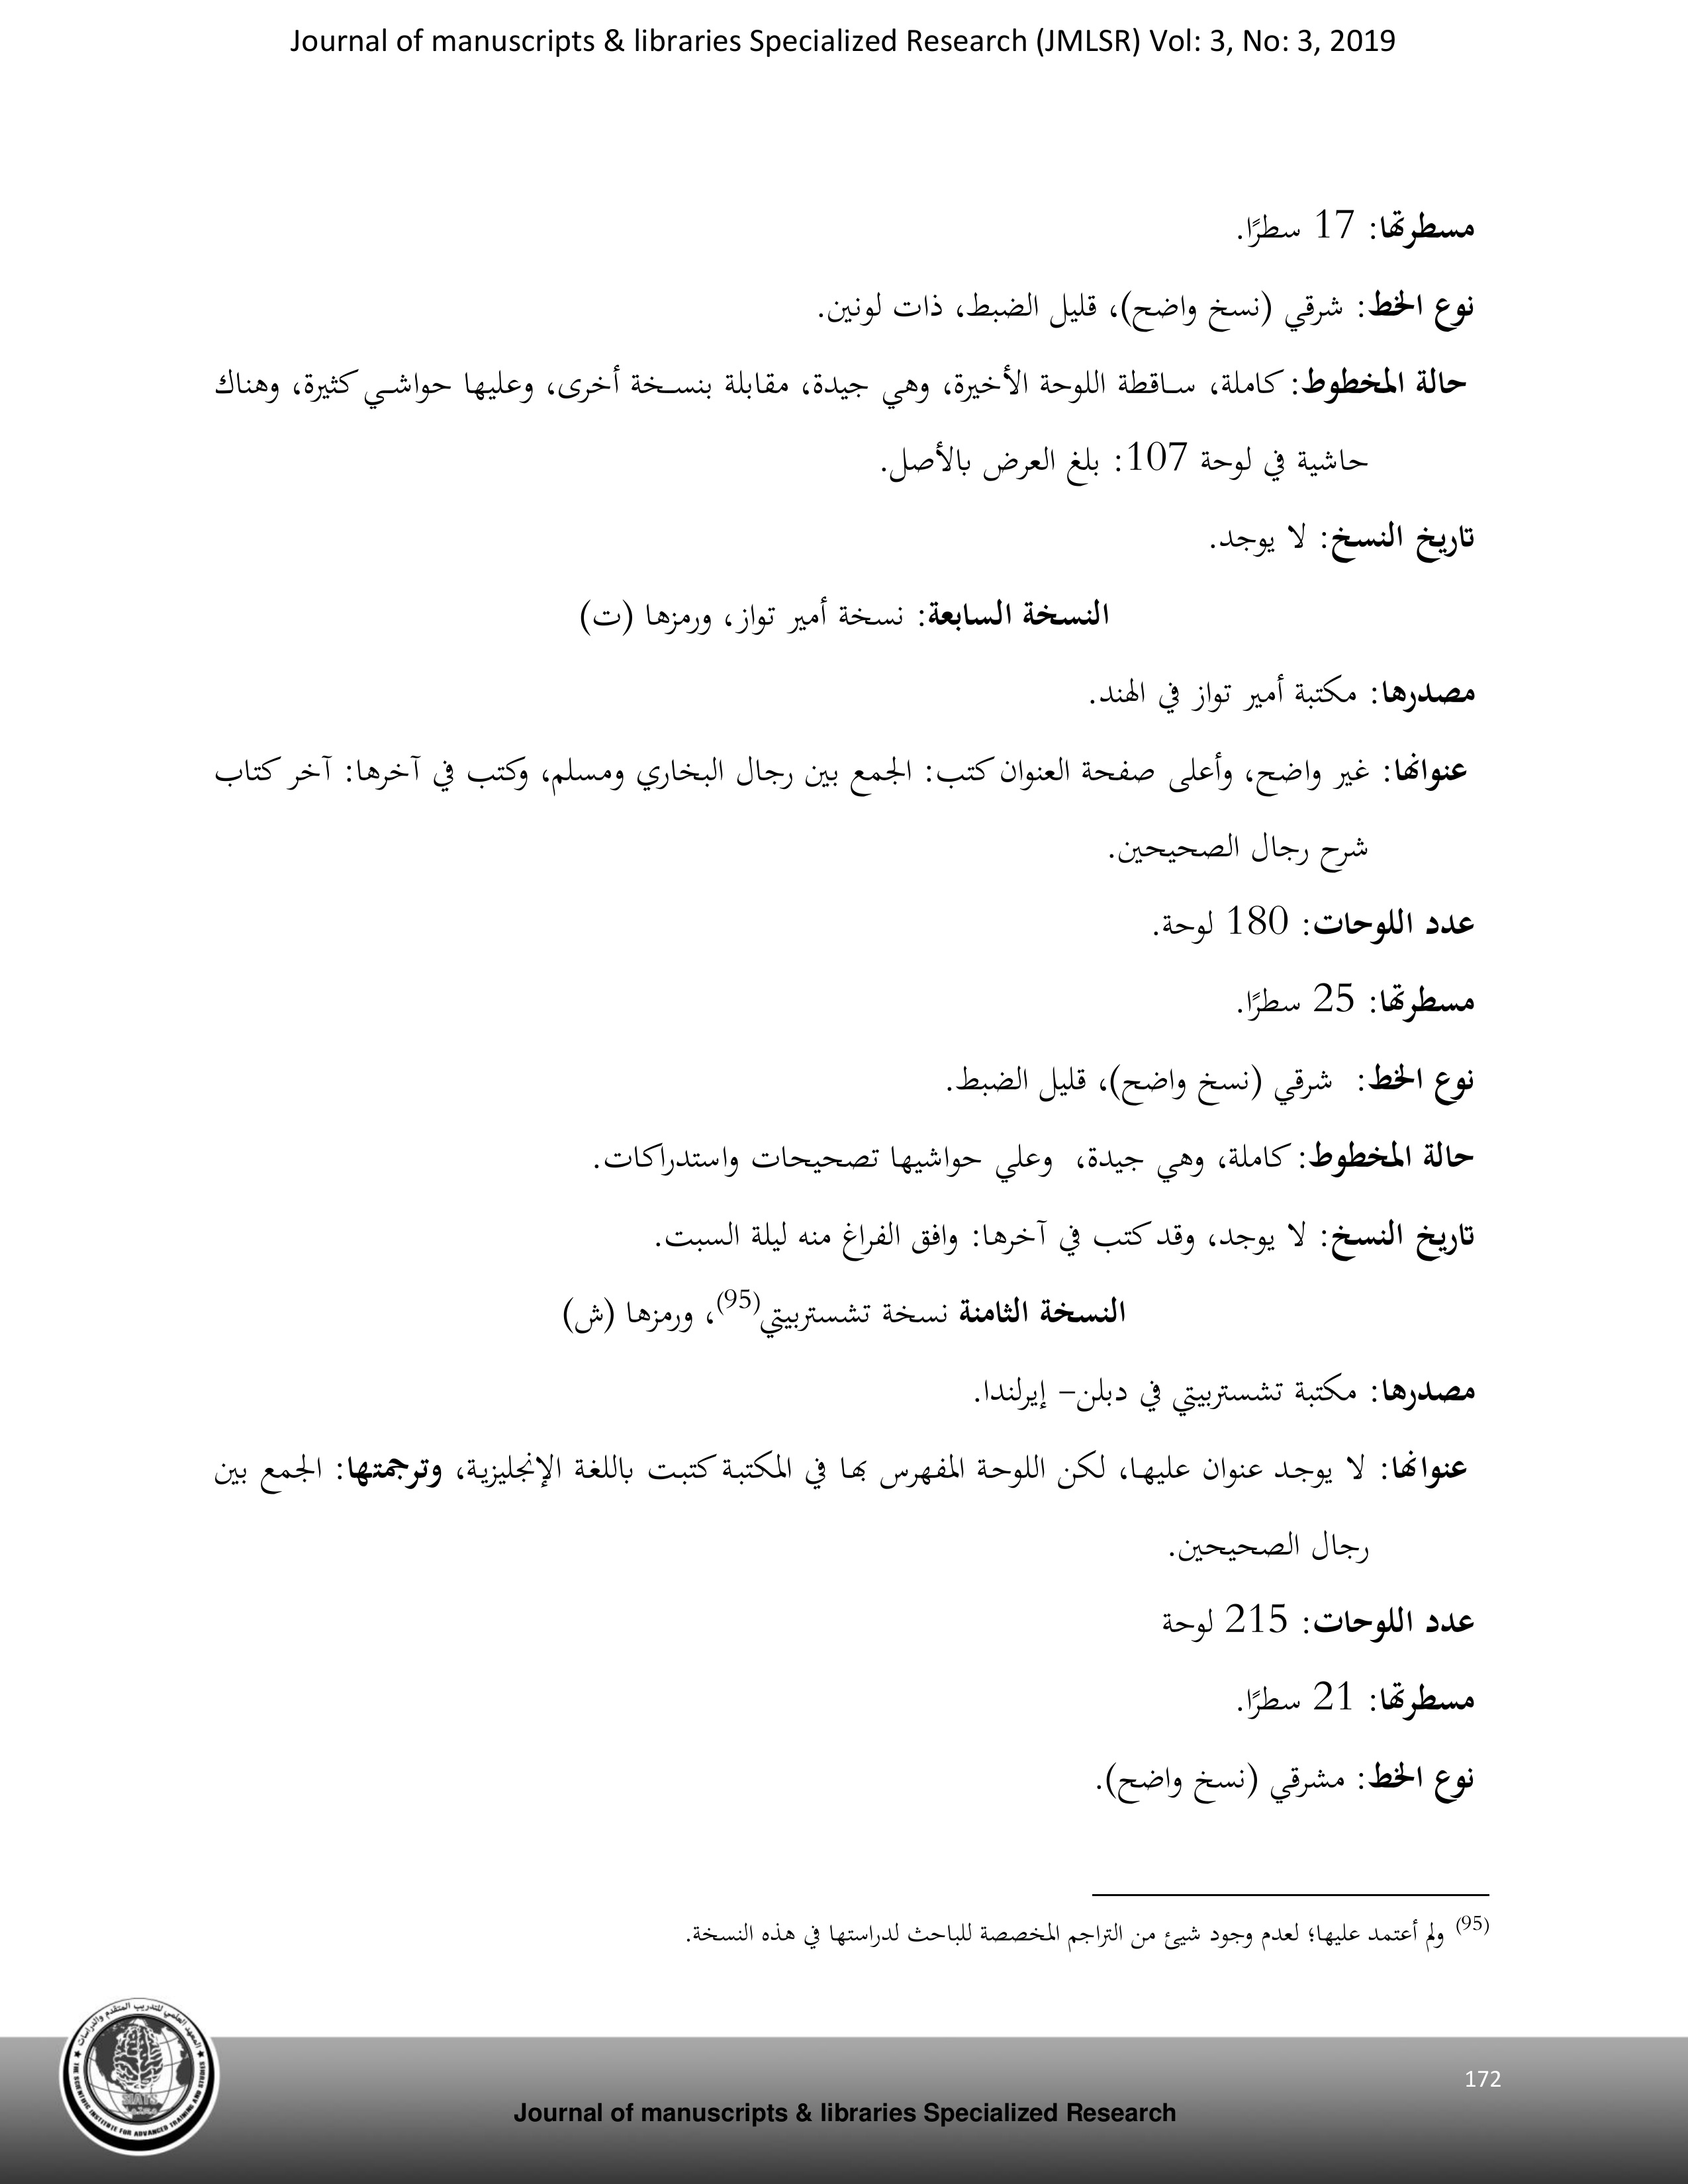 Journal of manuscripts & libraries Specialized Research (JMLSR) Vol: 3, No: 3, 2019
مسطرتها: 17 سطرًا.
نوع الخط: شرقي (نسخ واضح)، قليل الضبط، ذات لونين.
حالة المخطوط: كاملة، ساقطة اللوحة الأخيرة، وهي جيدة، مقابلة بنسخة أخرى، وعليها حواشي كثيرة، وهناك
حاشية في لوحة 107: بلغ العرض بالأصل.
تاريخ النسخ: لا يوجد.
النسخة السابعة: نسخة أمير تواز، ورمزها (ت)
مصدرها: مكتبة أمير تواز في الهند.
عنوانها: غير واضح، وأعلى صفحة العنوان كتب: الجمع بين رجال البخاري ومسلم، وكتب في آخرها: آخر كتاب
شرح رجال الصحيحين.
عدد اللوحات: 180 لوحة.
مسطرتها: 25 سطرًا.
نوع الخط: شرقي (نسخ واضح)، قليل الضبط.
حالة المخطوط: كاملة، وهي جيدة، وعلي حواشيها تصحيحات واستدراكات.
تاريخ النسخ: لا يوجد، وقد كتب في آخرها: وافق الفراغ منه ليلة السبت.
النسخة الثامنة نسخة تشستربيتي(95)، ورمزها (ش)
مصدرها: مكتبة تشستربيتي في دبلن– إيرلندا.
عنوانها: لا يوجد عنوان عليها، لكن اللوحة المفهرس بها في المكتبة كتبت باللغة الإنجليزية، وترجمتها: الجمع بين
رجال الصحيحين.
عدد اللوحات: 215 لوحة
مسطرتها: 21 سطرًا.
نوع الخط: مشرقي (نسخ واضح).
(95) ولم أعتمد عليها؛ لعدم وجود شيئ من التراجم المخصصة للباحث لدراستها في هذه النسخة.
المعهد العلمي للتدريب المتقدم والدراسات
THE SCIENTIFIC INSTITUTE FOR ADVANCED TRAINING AND STUDIES
SIATS
172
Journal of manuscripts & libraries Specialized Research